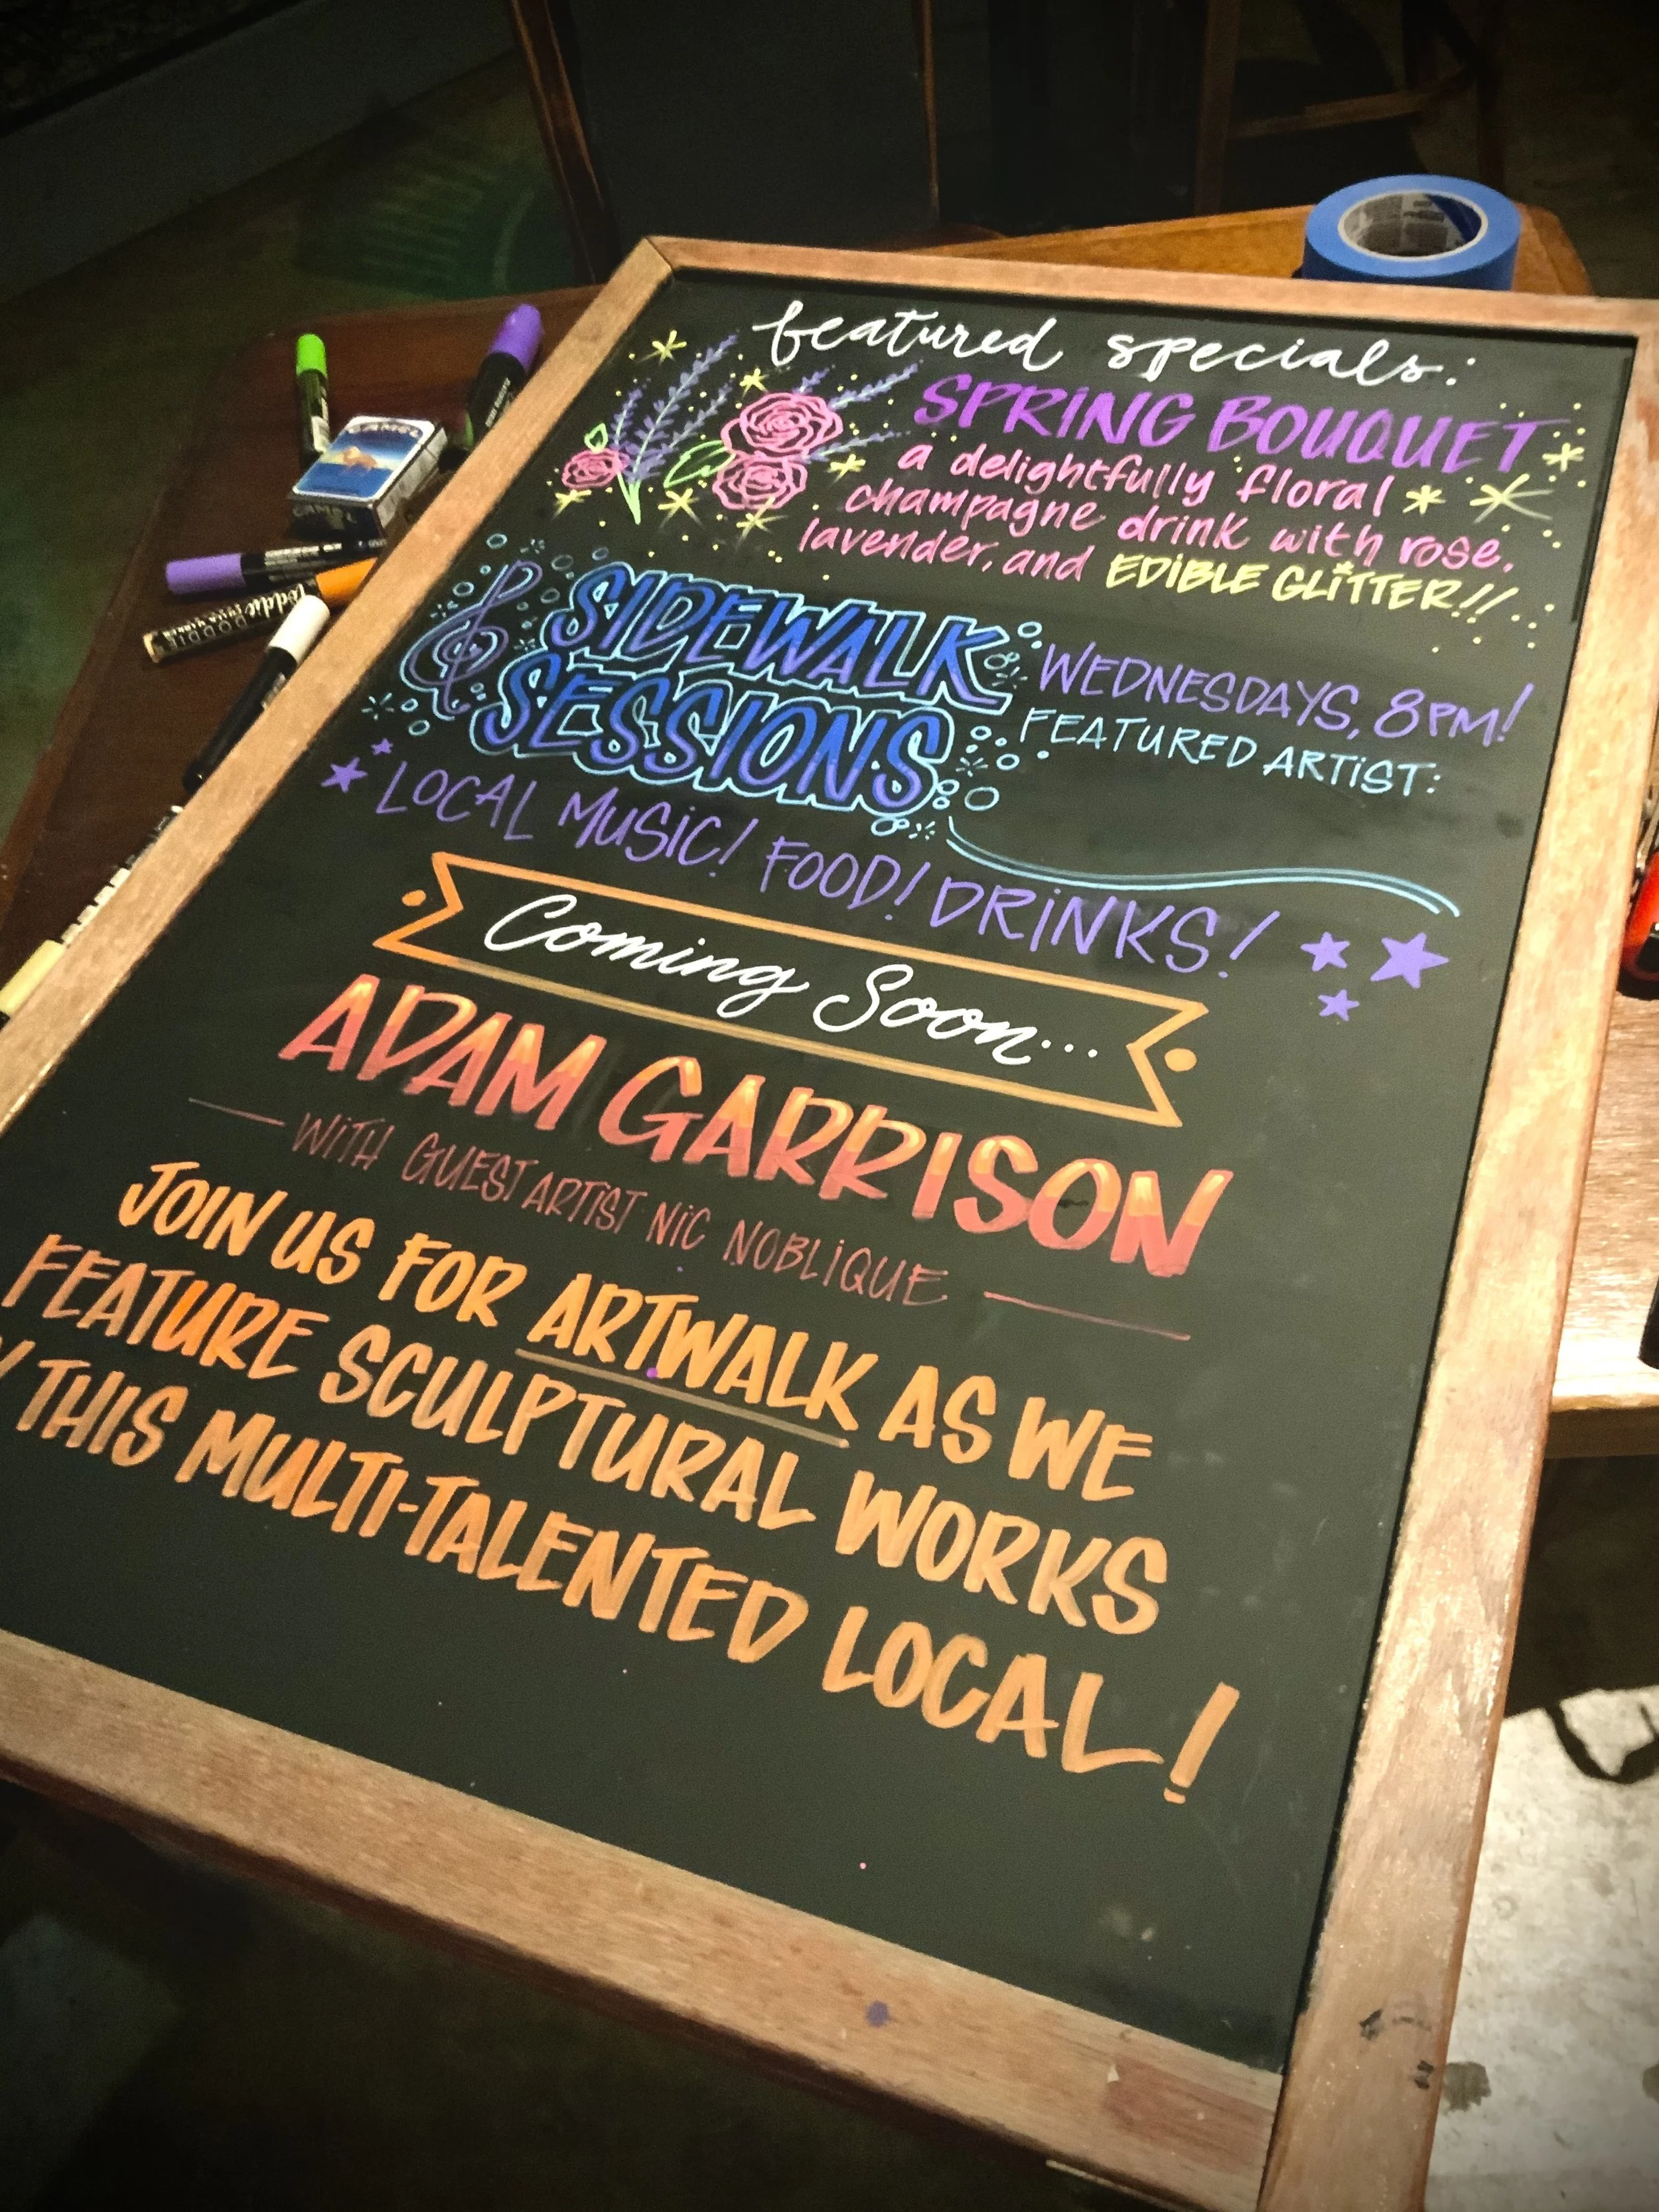 featured specials:
SPRING BOUQUET
a delightfully floral
champagne drink with rose,
lavender, and EDIBLE GLITTER!!
SIDEWALK
SESSIONS
WEDNESDAYS, 8PM!
FEATURED ARTIST:
LOCAL MUSIC! FOOD! DRINKS!
Coming Soon...
ADAM GARRISON
WITH GUEST ARTIST NIC NOBLIQUE
JOIN US FOR ARTWALK AS WE
FEATURE SCULPTURAL WORKS
Y THIS MULTI-TALENTED LOCAL!
CAMEL
CAMEL